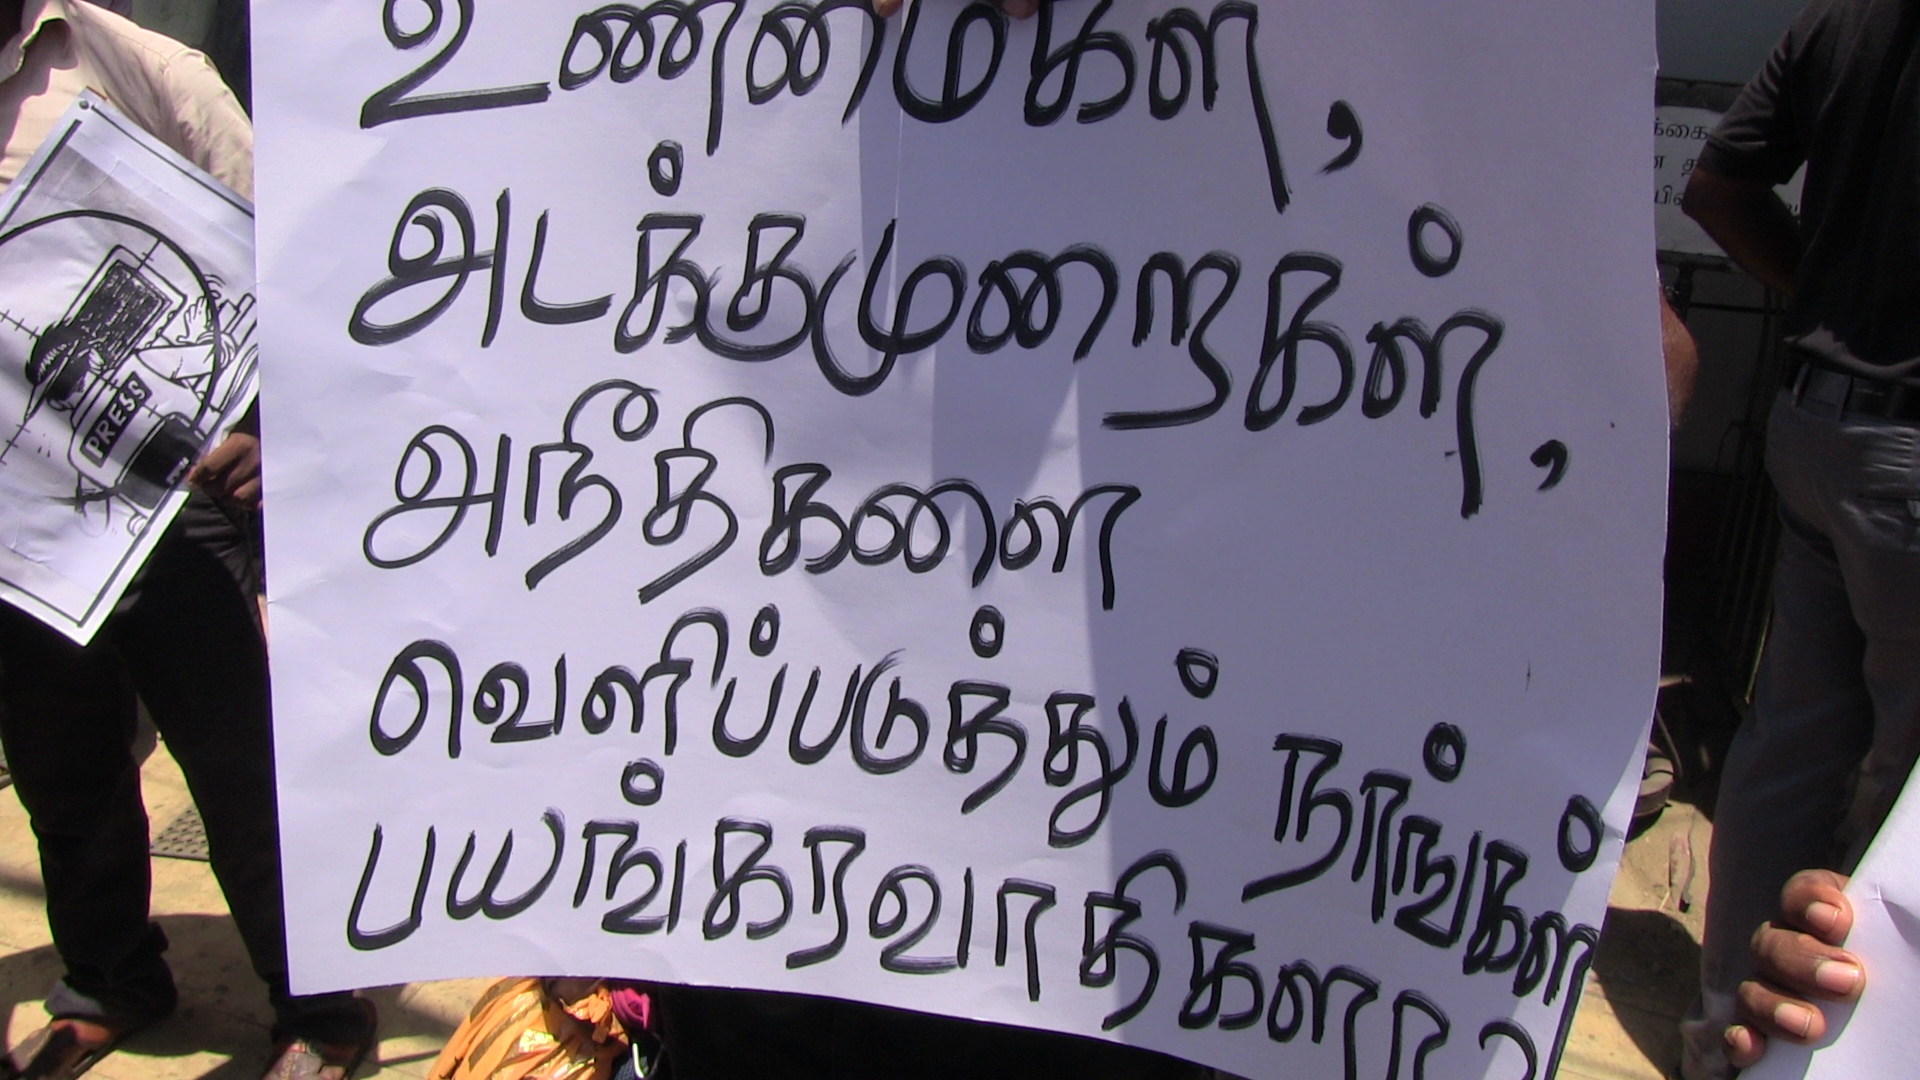 உண்மைகள்,
அடக்குமுறைகள்,
அநீதிகளை
வெளிப்படுத்தும் நாங்கள்
பயங்கரவாதிகளா?
PRESS